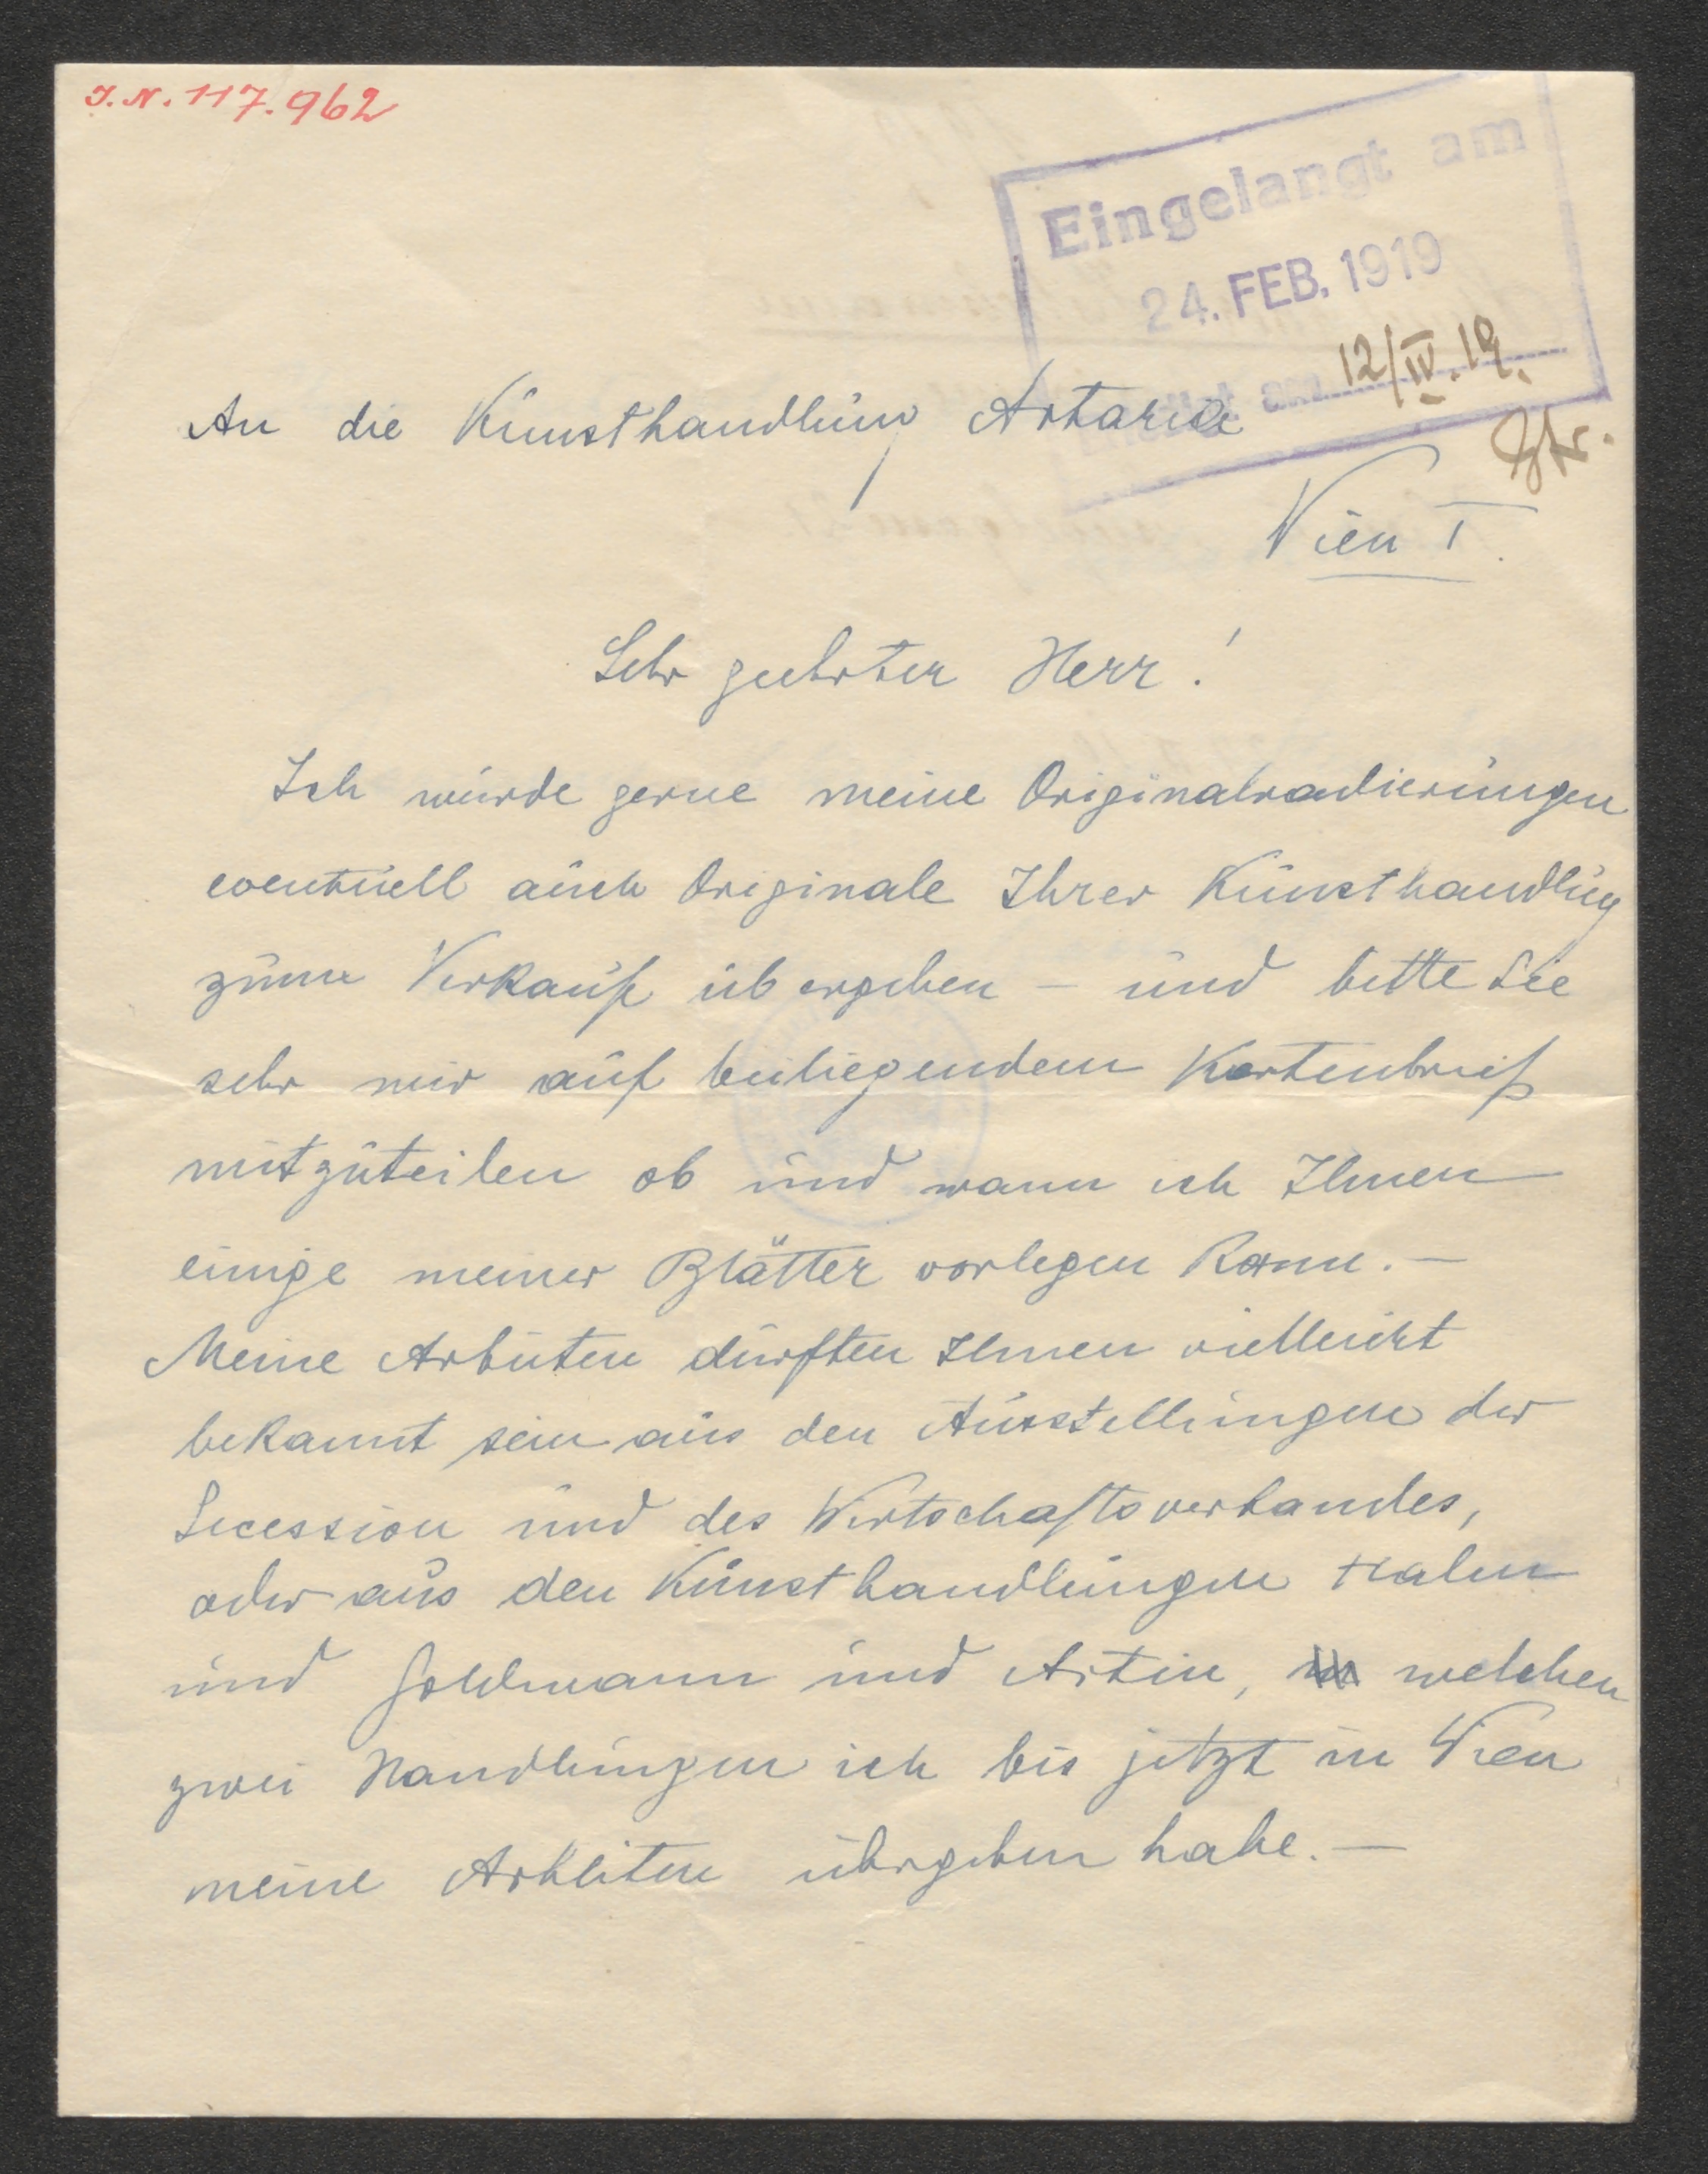 J.N. 117.962
Eingelangt am
24. FEB. 1919
am 12/IV. 19.
An die Kunsthandlung Artaria
Wien I.
Sehr geehrter Herr!
Ich würde gerne meine Originalradierungen
eventuell auch Originale Ihrer Kunsthandlug
zum Verkauf übergeben – und bitte Sie
sehr mir auf beiliegendem Kartenbrief
mitzuteilen ob und wann ich Ihnen
einige meiner Blätter vorlegen kann. –
Meine Arbeiten dürften Ihnen vielleicht
bekannt sein aus den Ausstellungen der
Secession und des Wirtschaftsverbandes,
oder aus den Kunsthandlungen Halm
und Goldmann und Artin, welchen
zwei Handlungen ich bis jetzt in Wien
meine Arbeiten übergeben habe. –